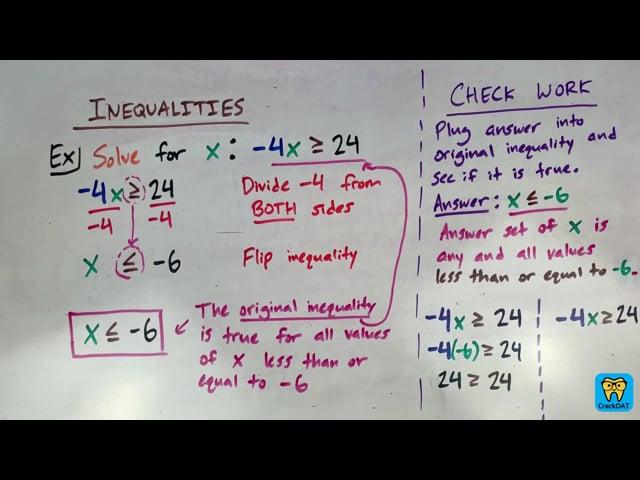 INEQUALITIES
Ex) Solve for x: -4x ≥ 24
-4x ≥ 24
-4 -4
Divide -4 from
BOTH sides
x ≤ -6
Flip inequality
x ≤ -6
The original inequality
is true for all values
of x less than or
equal to -6
CHECK WORK
Plug answer into
original inequality and
see if it is true.
Answer: x ≤ -6
Answer set of x is
any and all values
less than or equal to -6.
-4x ≥ 24
-4(-6) ≥ 24
24 ≥ 24
-4x ≥ 24
CrackDAT